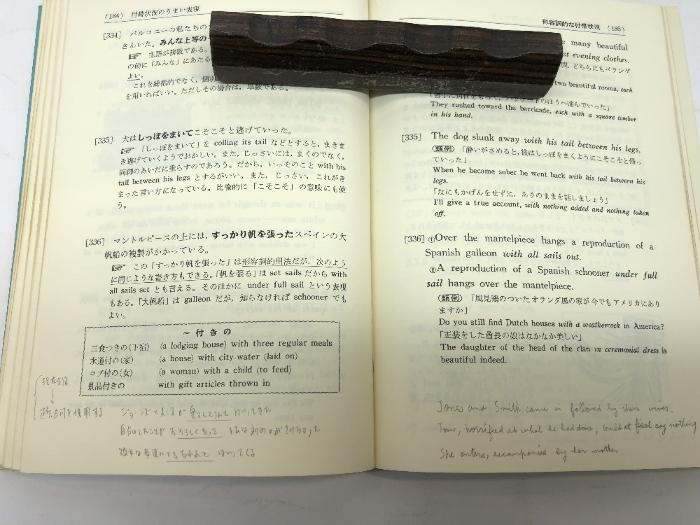 (184) 付帯状況のうまい表現
[334] バルコニーの私たちの
さんいた。みんな上等の
の前に「みんな」にあたる
よい。
[335] 犬はしっぽをまいてこそこそと逃げていった。
☞ 「しっぽをまいて」を coiling its tail などとすると、まきま
き逃げていくようでおかしい。また、じっさいには、まくのでなく、
両脚のあいだに垂らすのであろう。だから、いっそのこと with his
tail between his legs とするがいい。また、じっさい、これがき
まった言い方になっている。比喩的に「こそこそ」の意味にも使
う。
[336] マントルピースの上には、すっかり帆を張ったスペインの大
帆船の複製がかかっている。
☞ この「すっかり帆を張った」は形容詞的用法だが、次のよう
に同じような続き方もできる。「帆を張る」は set sails だから with
all sails set とも言える。そのほかに under full sail という表現
もある。「大帆船」は galleon だが、知らなければ schooner でも
よい。
～付きの
三食つきの(下宿) (a lodging house) with three regular meals
水道付の(家) (a house) with city-water (laid on)
コブ付の(女) (a woman) with a child (to feed)
景品付きの with gift articles thrown in
形容詞的な付帯状況 (185)
many beautiful
evening clothes.
two beautiful rooms, each
They rushed toward the barricade, each with a square timber
in his hand.
[335] The dog slunk away with his tail between his legs.
(類例) 「酔いがさめると、彼はしっぽをまくようにこそこそと帰っ
ていった」
When he became sober he went back with his tail between his
legs.
「なにもかげんをせずに、ありのままを話しましょう」
I'll give a true account, with nothing added and nothing taken
off.
[336] ①Over the mantelpiece hangs a reproduction of a
Spanish galleon with all sails out.
②A reproduction of a Spanish schooner under full
sail hangs over the mantelpiece.
(類例) 「風見鶏のついたオランダ風の家が今でもアメリカにあり
ますか」
Do you still find Dutch houses with a weathercock in America?
「正装をした酋長の娘はなかなか美しい」
The daughter of the head of the clan in ceremonial dress is
beautiful indeed.
Jones and Smith came in followed by their wives.
Tom, horrified at what he had done, could at first say nothing
She enters, accompanied by her mother